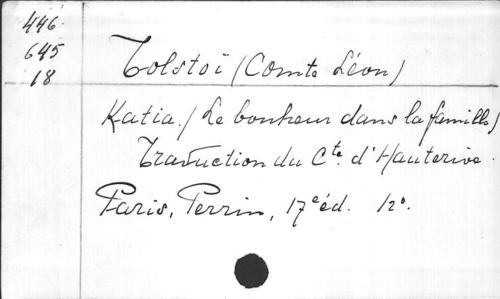 446.
645
18
Tolstoï (Comte Léon)
Katia. (Le bonheur dans la famille)
Traduction du Cte. d'Hauterive.
Paris, Perrin, 17e éd. 12o.